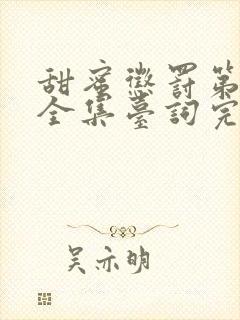 甜蜜懲罰第
全集臺詞完
吴亦明